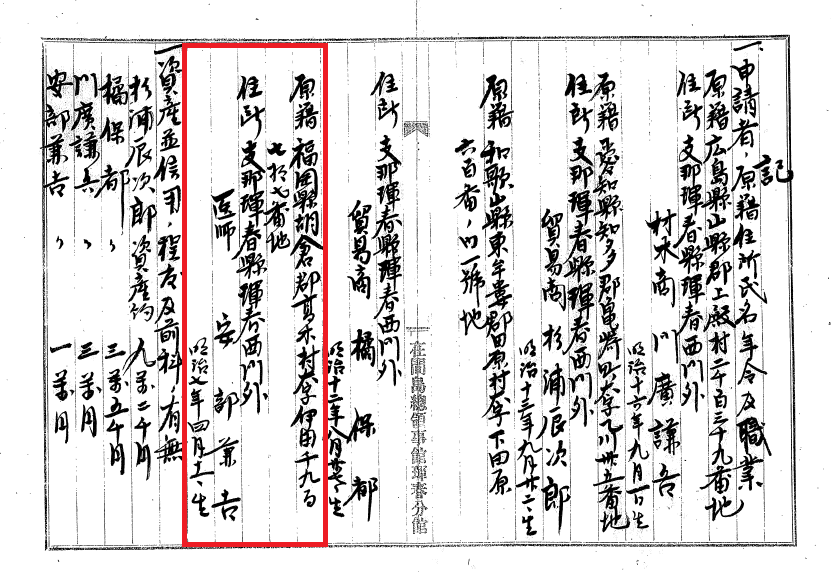 記
一、申請者ノ原籍住所氏名年令及職業
原籍 広島縣山縣郡工殿村二千百三十九番地
住所 支那琿春縣琿春西門外
材木商 川廣謙吉
明治十六年九月一日生
原籍 愛知縣知多郡亀崎町大字乙川卅五番地
住所 支那琿春縣琿春西門外
貿易商 杉浦辰次郎
明治十三年九月廿二日生
原籍 和歌山縣東牟婁郡田原村大字下田原
六百番ノ一號地
住所 支那琿春縣琿春西門外
貿易商 橘保都
明治十二年八月生
在間島總領事館琿春分館
原籍 福岡縣朝倉郡高木村大字佛田千九百
七拾七番地
住所 支那琿春縣琿春西門外
医師 安部兼吉
明治七年四月十二日生
一、資産並信用ノ程度及前科ノ有無
杉浦辰次郎 資産約 九萬二千円
橘保都 〃 三萬五千円
川廣謙吉 〃 三萬円
安部兼吉 〃 一萬円